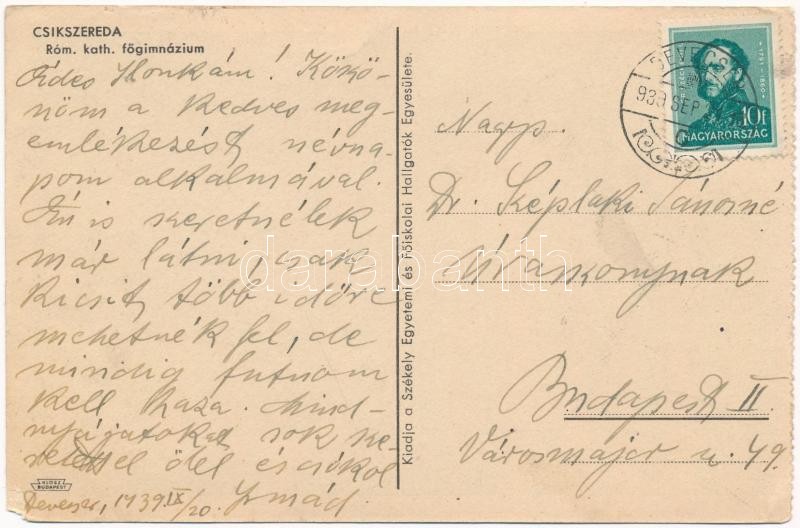 CSIKSZEREDA
Róm. kath. főgimnázium
Édes Ilonkám! Köszö-
nöm a kedves meg-
emlékezést névna-
pom alkalmával.
Én is szeretnélek
már látni, csak
kicsit több időre
mehetnék fel, de
mindig futnom
kell haza. Mind-
nyájatokat sok sze-
retettel ölel és csókol
Devecser, 1939. IX/20. Irmád
KLÖSZ
BUDAPEST
Kiadja a Székely Egyetemi és Főiskolai Hallgatók Egyesülete.
DEVECSE
939 SEP
10f
MAGYARORSZÁG
1791-1860
Nagys.
Dr. Széplaki Jánosné
Úrasszonynak
Budapest II
Városmajor u. 49.
darabanth